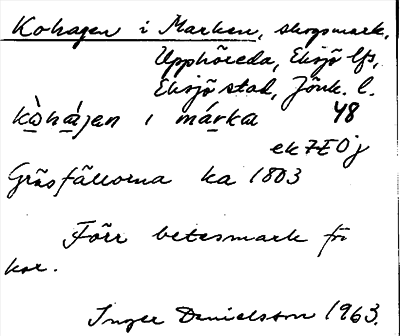 Kohagen i Marken, skogsmark,
Upphöreda, Eksjö lfs,
Eksjö stad, Jönk. l.
kò̱há̱jen i má̱rka 48
ek 7E0j
Gräsfållorna ka 1803
Förr betesmark för
kor.
Inger Danielsson 1963.